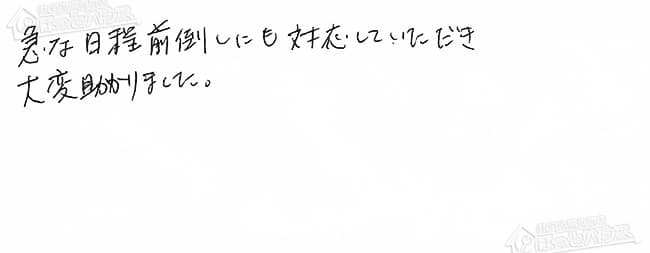 急な日程前倒しにも対応していただき
大変助かりました。